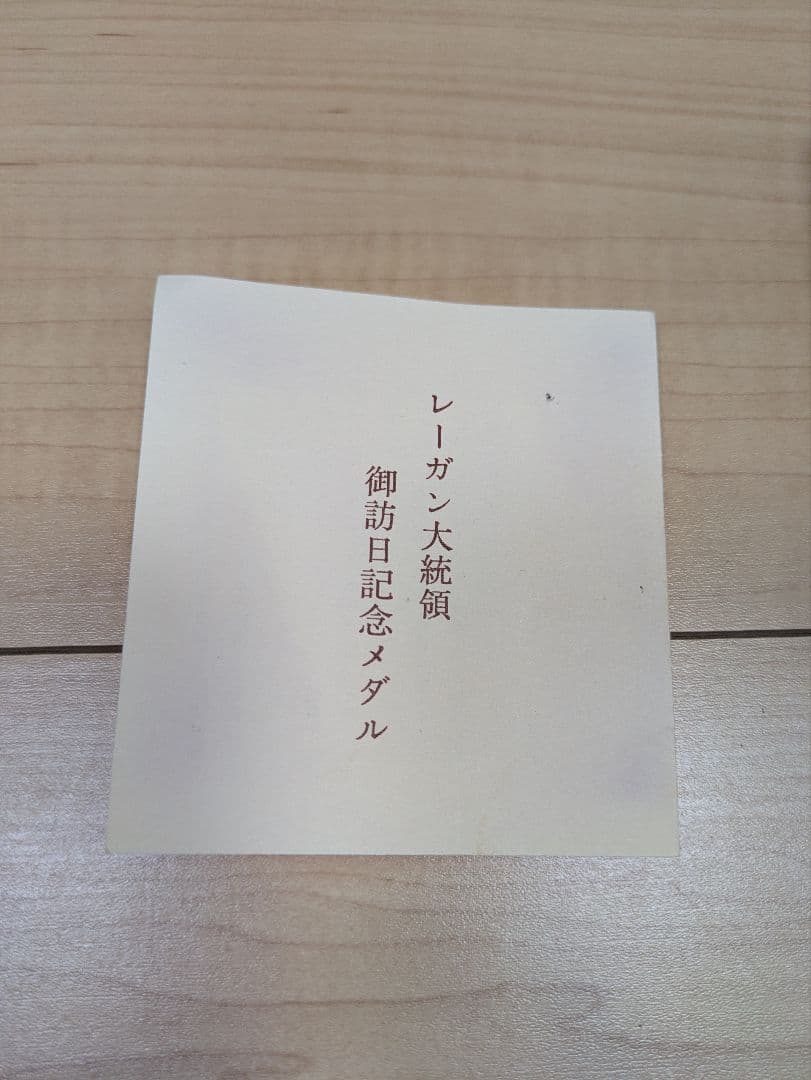 レーガン大統領
御訪日記念メダル